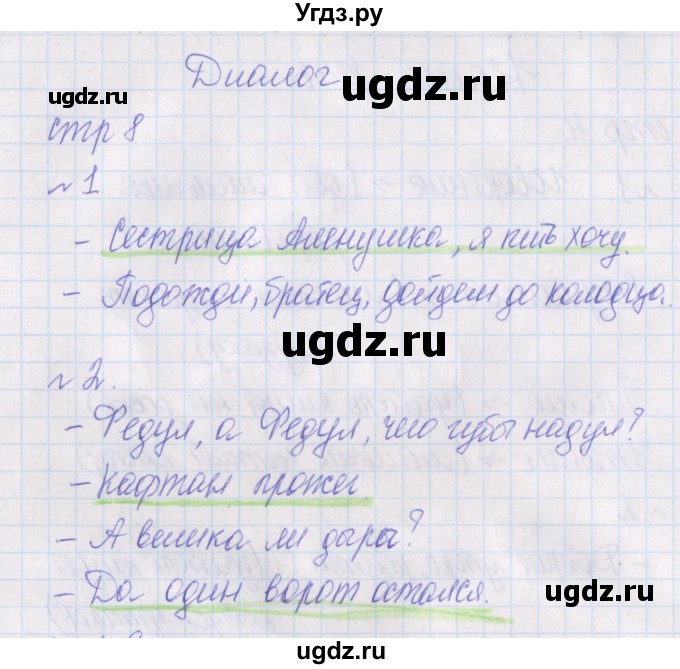 Угдз.ру
Диалог
ugdz.ru
ugdz.ru
стр 8
№ 1
ugdz.ru
- Сестрица Аленушка, я пить хочу.
- Подожди, братец, дойдем до колодца.
ugdz.ru
№ 2.
- Федул, а Федул, чего губы надул?
ugdz.ru
- Кафтан прожег.
- А велика ли дыра?
ugdz.ru
- Да один ворот остался.
ugdz.ru
ugdz.ru